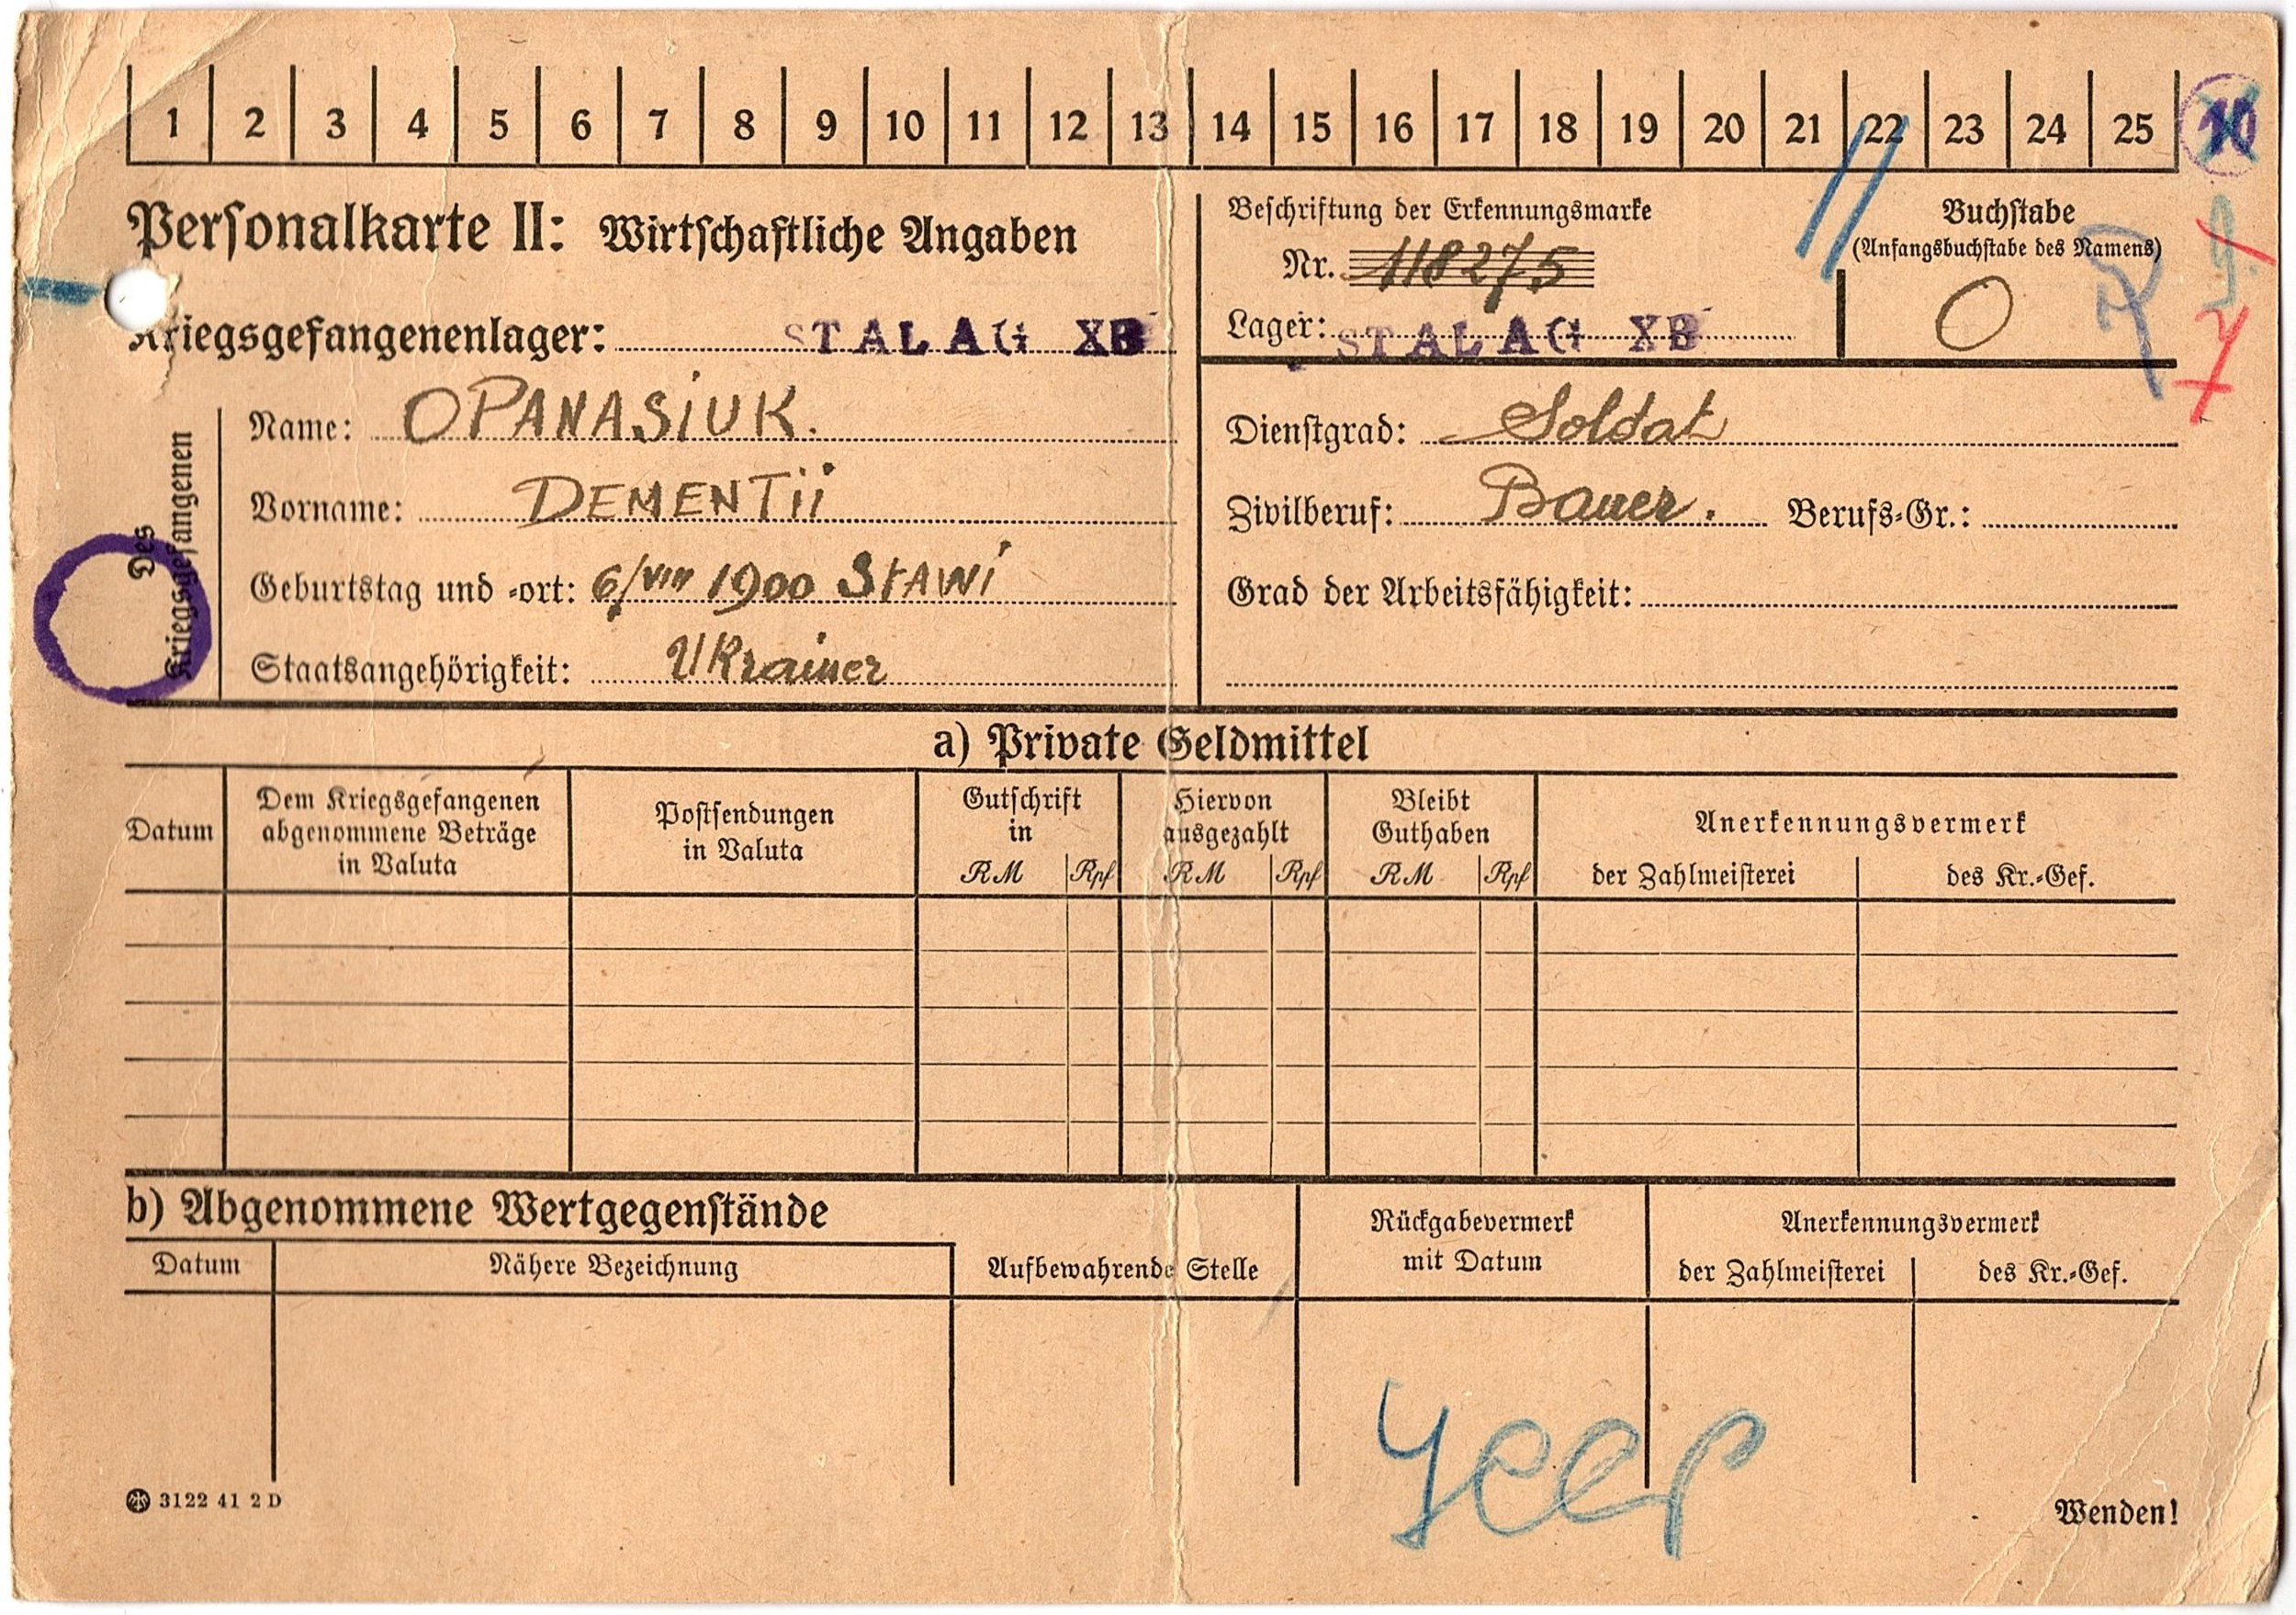 1 2 3 4 5 6 7 8 9 10 11 12 13 14 15 16 17 18 19 20 21 22 23 24 25
Personalkarte II: Wirtschaftliche Angaben
Kriegsgefangenenlager: STALAG XB
Des Kriegsgefangenen
Name: OPANASIUK.
Vorname: DEMENTII
Geburtstag und -ort: 6/VIII 1900 STAWI
Staatsangehörigkeit: Ukrainer
Beschriftung der Erkennungsmarke
Nr. 118275
Lager: STALAG XB
Buchstabe
(Anfangsbuchstabe des Namens)
O
Dienstgrad: Soldat
Zivilberuf: Bauer. Berufs-Gr.:
Grad der Arbeitsfähigkeit:
a) Private Geldmittel
Datum
Dem Kriegsgefangenen
abgenommene Beträge
in Valuta
Postsendungen
in Valuta
Gutschrift
in
RM Rpf
Hiervon
ausgezahlt
RM Rpf
Bleibt
Guthaben
RM Rpf
Anerkennungsvermerk
der Zahlmeisterei des Kr.-Gef.
b) Abgenommene Wertgegenstände
Datum Nähere Bezeichnung
Aufbewahrende Stelle
Rückgabevermerk
mit Datum
Anerkennungsvermerk
der Zahlmeisterei des Kr.-Gef.
3122 41 2 D
Wenden!